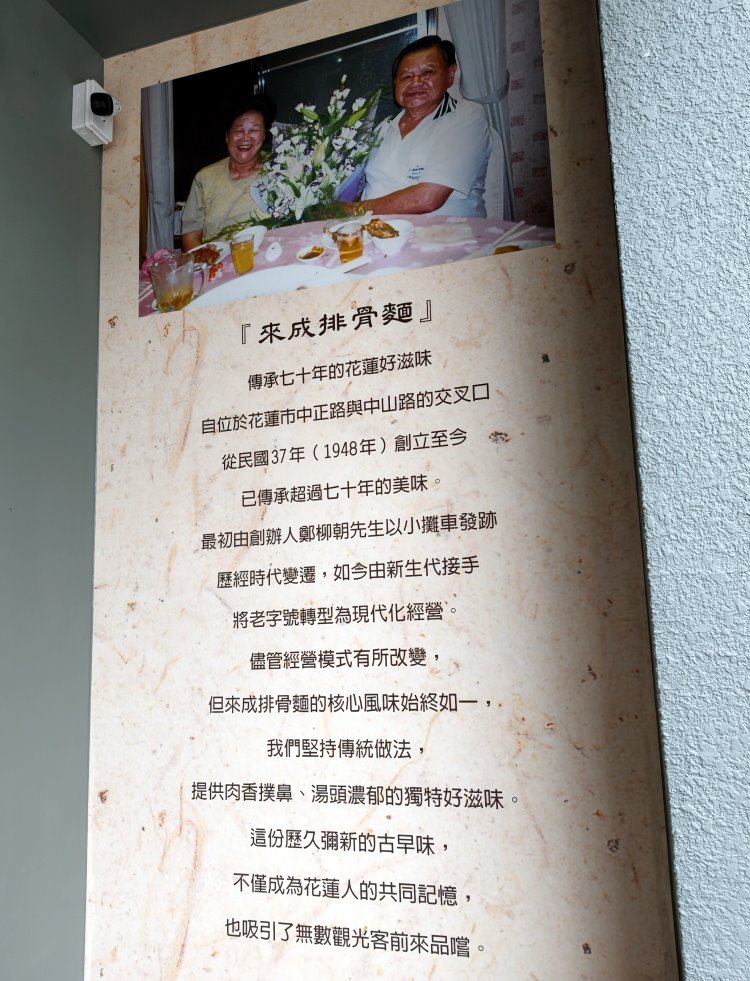 『來成排骨麵』
傳承七十年的花蓮好滋味
自位於花蓮市中正路與中山路的交叉口
從民國37年（1948年）創立至今
已傳承超過七十年的美味。
最初由創辦人鄭柳朝先生以小攤車發跡
歷經時代變遷，如今由新生代接手
將老字號轉型為現代化經營。
儘管經營模式有所改變，
但來成排骨麵的核心風味始終如一，
我們堅持傳統做法，
提供肉香撲鼻、湯頭濃郁的獨特好滋味。
這份歷久彌新的古早味，
不僅成為花蓮人的共同記憶，
也吸引了無數觀光客前來品嚐。